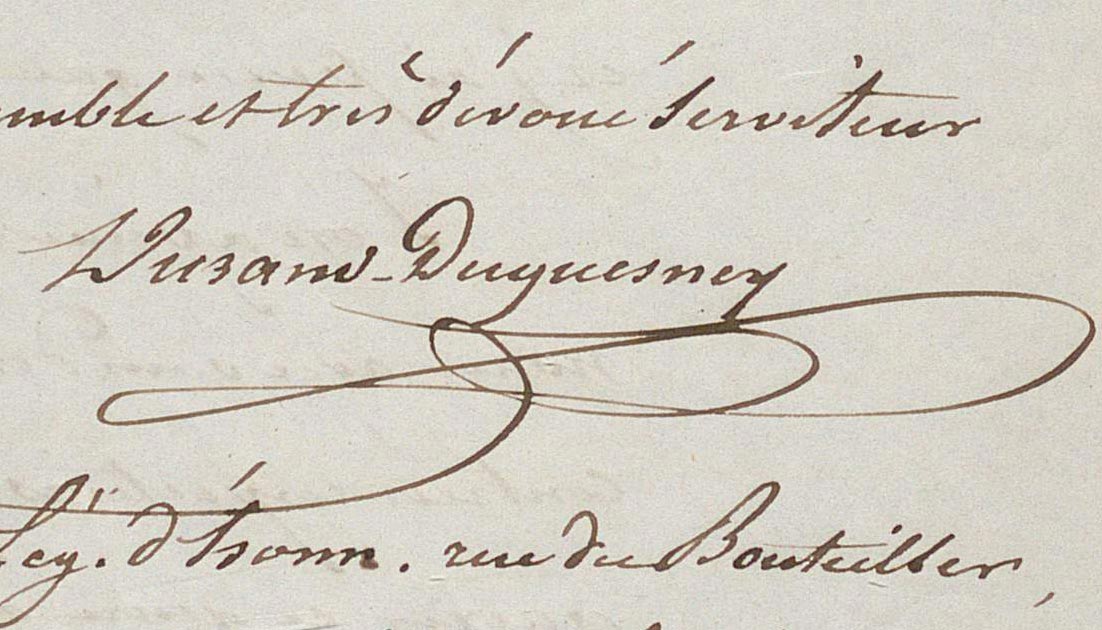 umble et très dévoué serviteur
Durand-Duquesney
Lég. d'honn. rue du Bouteiller,